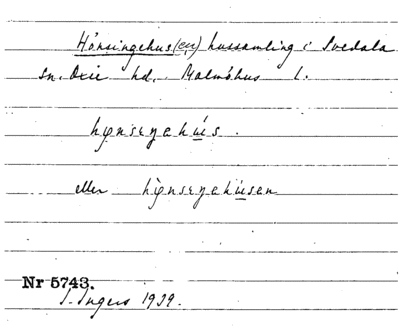 Hönsingehus(en) hussamling i Svedala
sn. Oxie hd. Malmöhus l.
hφnsεŋehu̲s.
eller hφnsεŋehu̲sen
Nr 5743.
I. Ingers 1939.